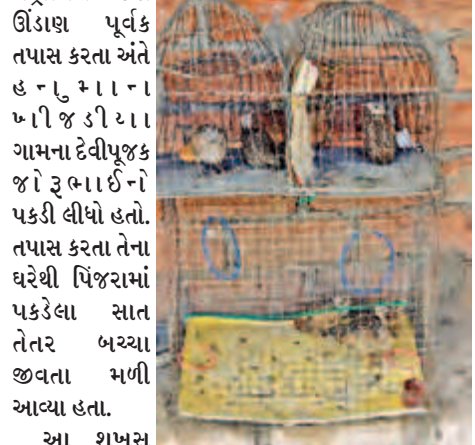 ઊંડાણ પૂર્વક
તપાસ કરતા અંતે
હનુમાના
ખીજડીયા
ગામના દેવીપૂજક
જોરૂભાઈનો
પકડી લીધો હતો.
તપાસ કરતા તેના
ઘરેથી પિંજરામાં
પકડેલા સાત
તેતર બચ્ચા
જીવતા મળી
આવ્યા હતા.
આ શખ્સ